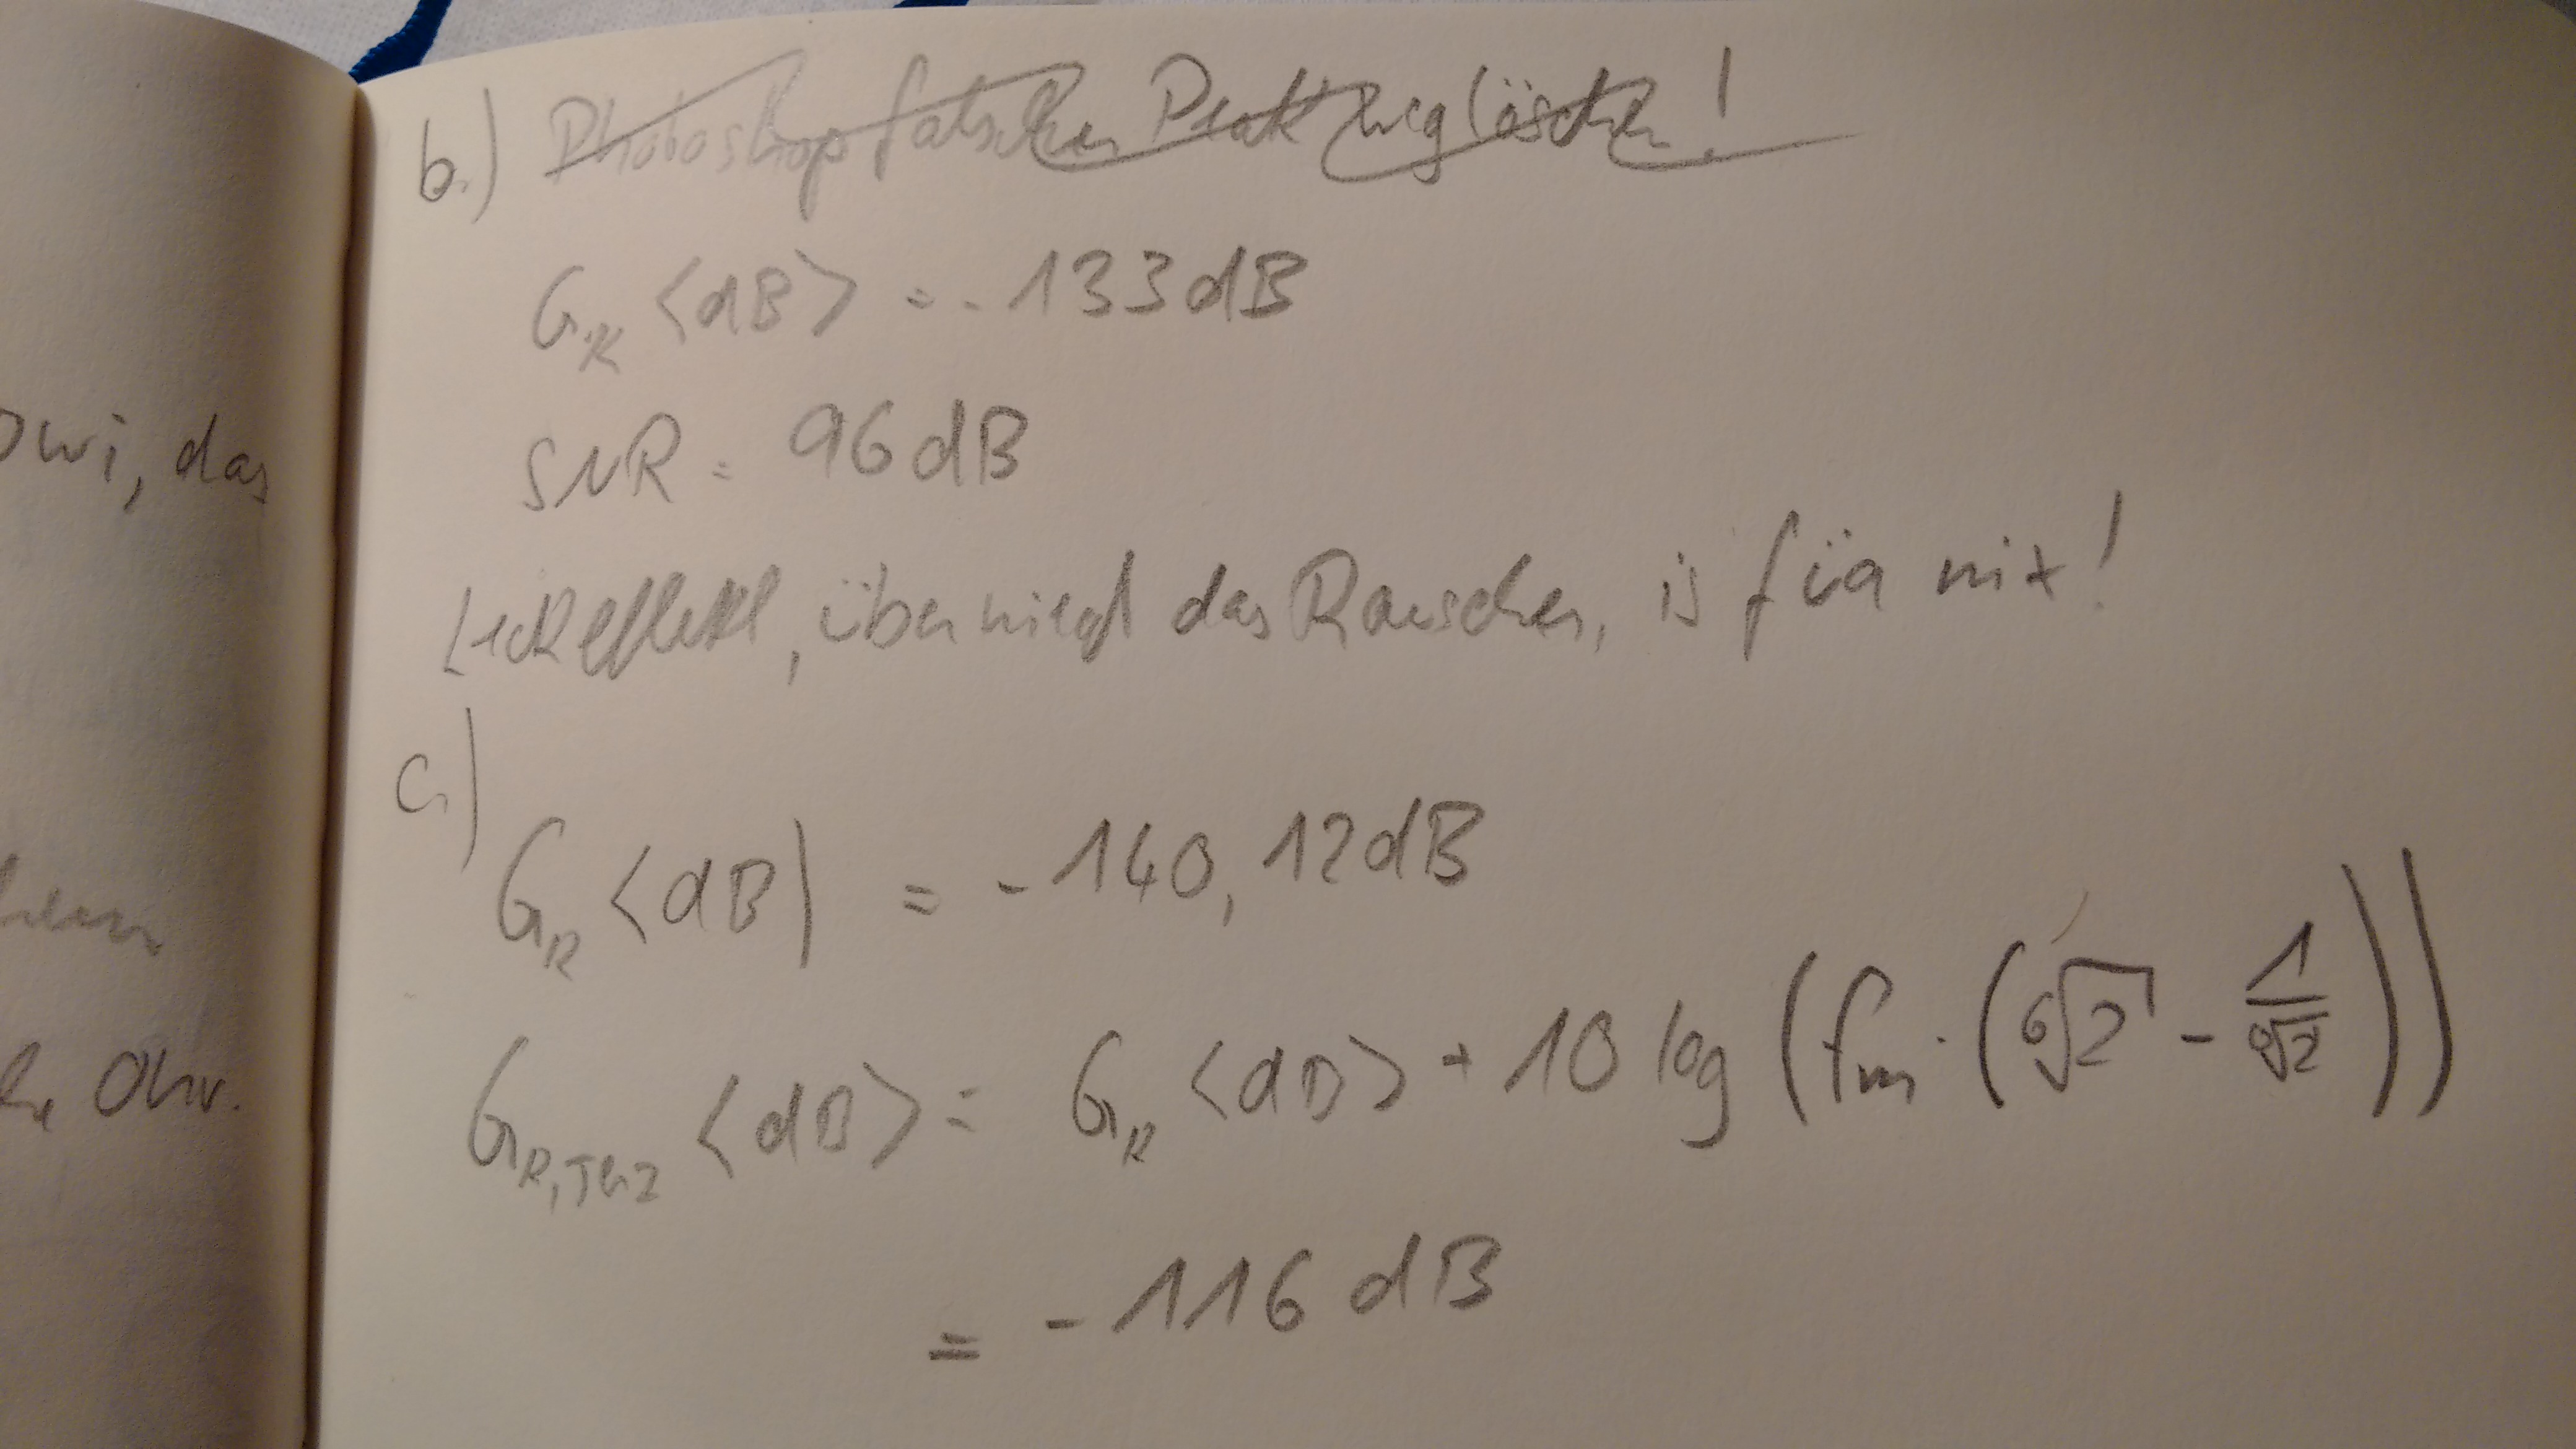 owi, das
Ohr.
b.) Photoshop falschen Peak weglöschen!
G_R <dB> = -133dB
SNR = 96dB
Leckeffekt, überwiegt das Rauschen, is füa nix!
c.)
G_R <dB> = -140,12dB
G_R,Terz <dB> = G_R <dB> + 10 log (fm · (⁶√2 - 1/⁶√2))
= -116 dB